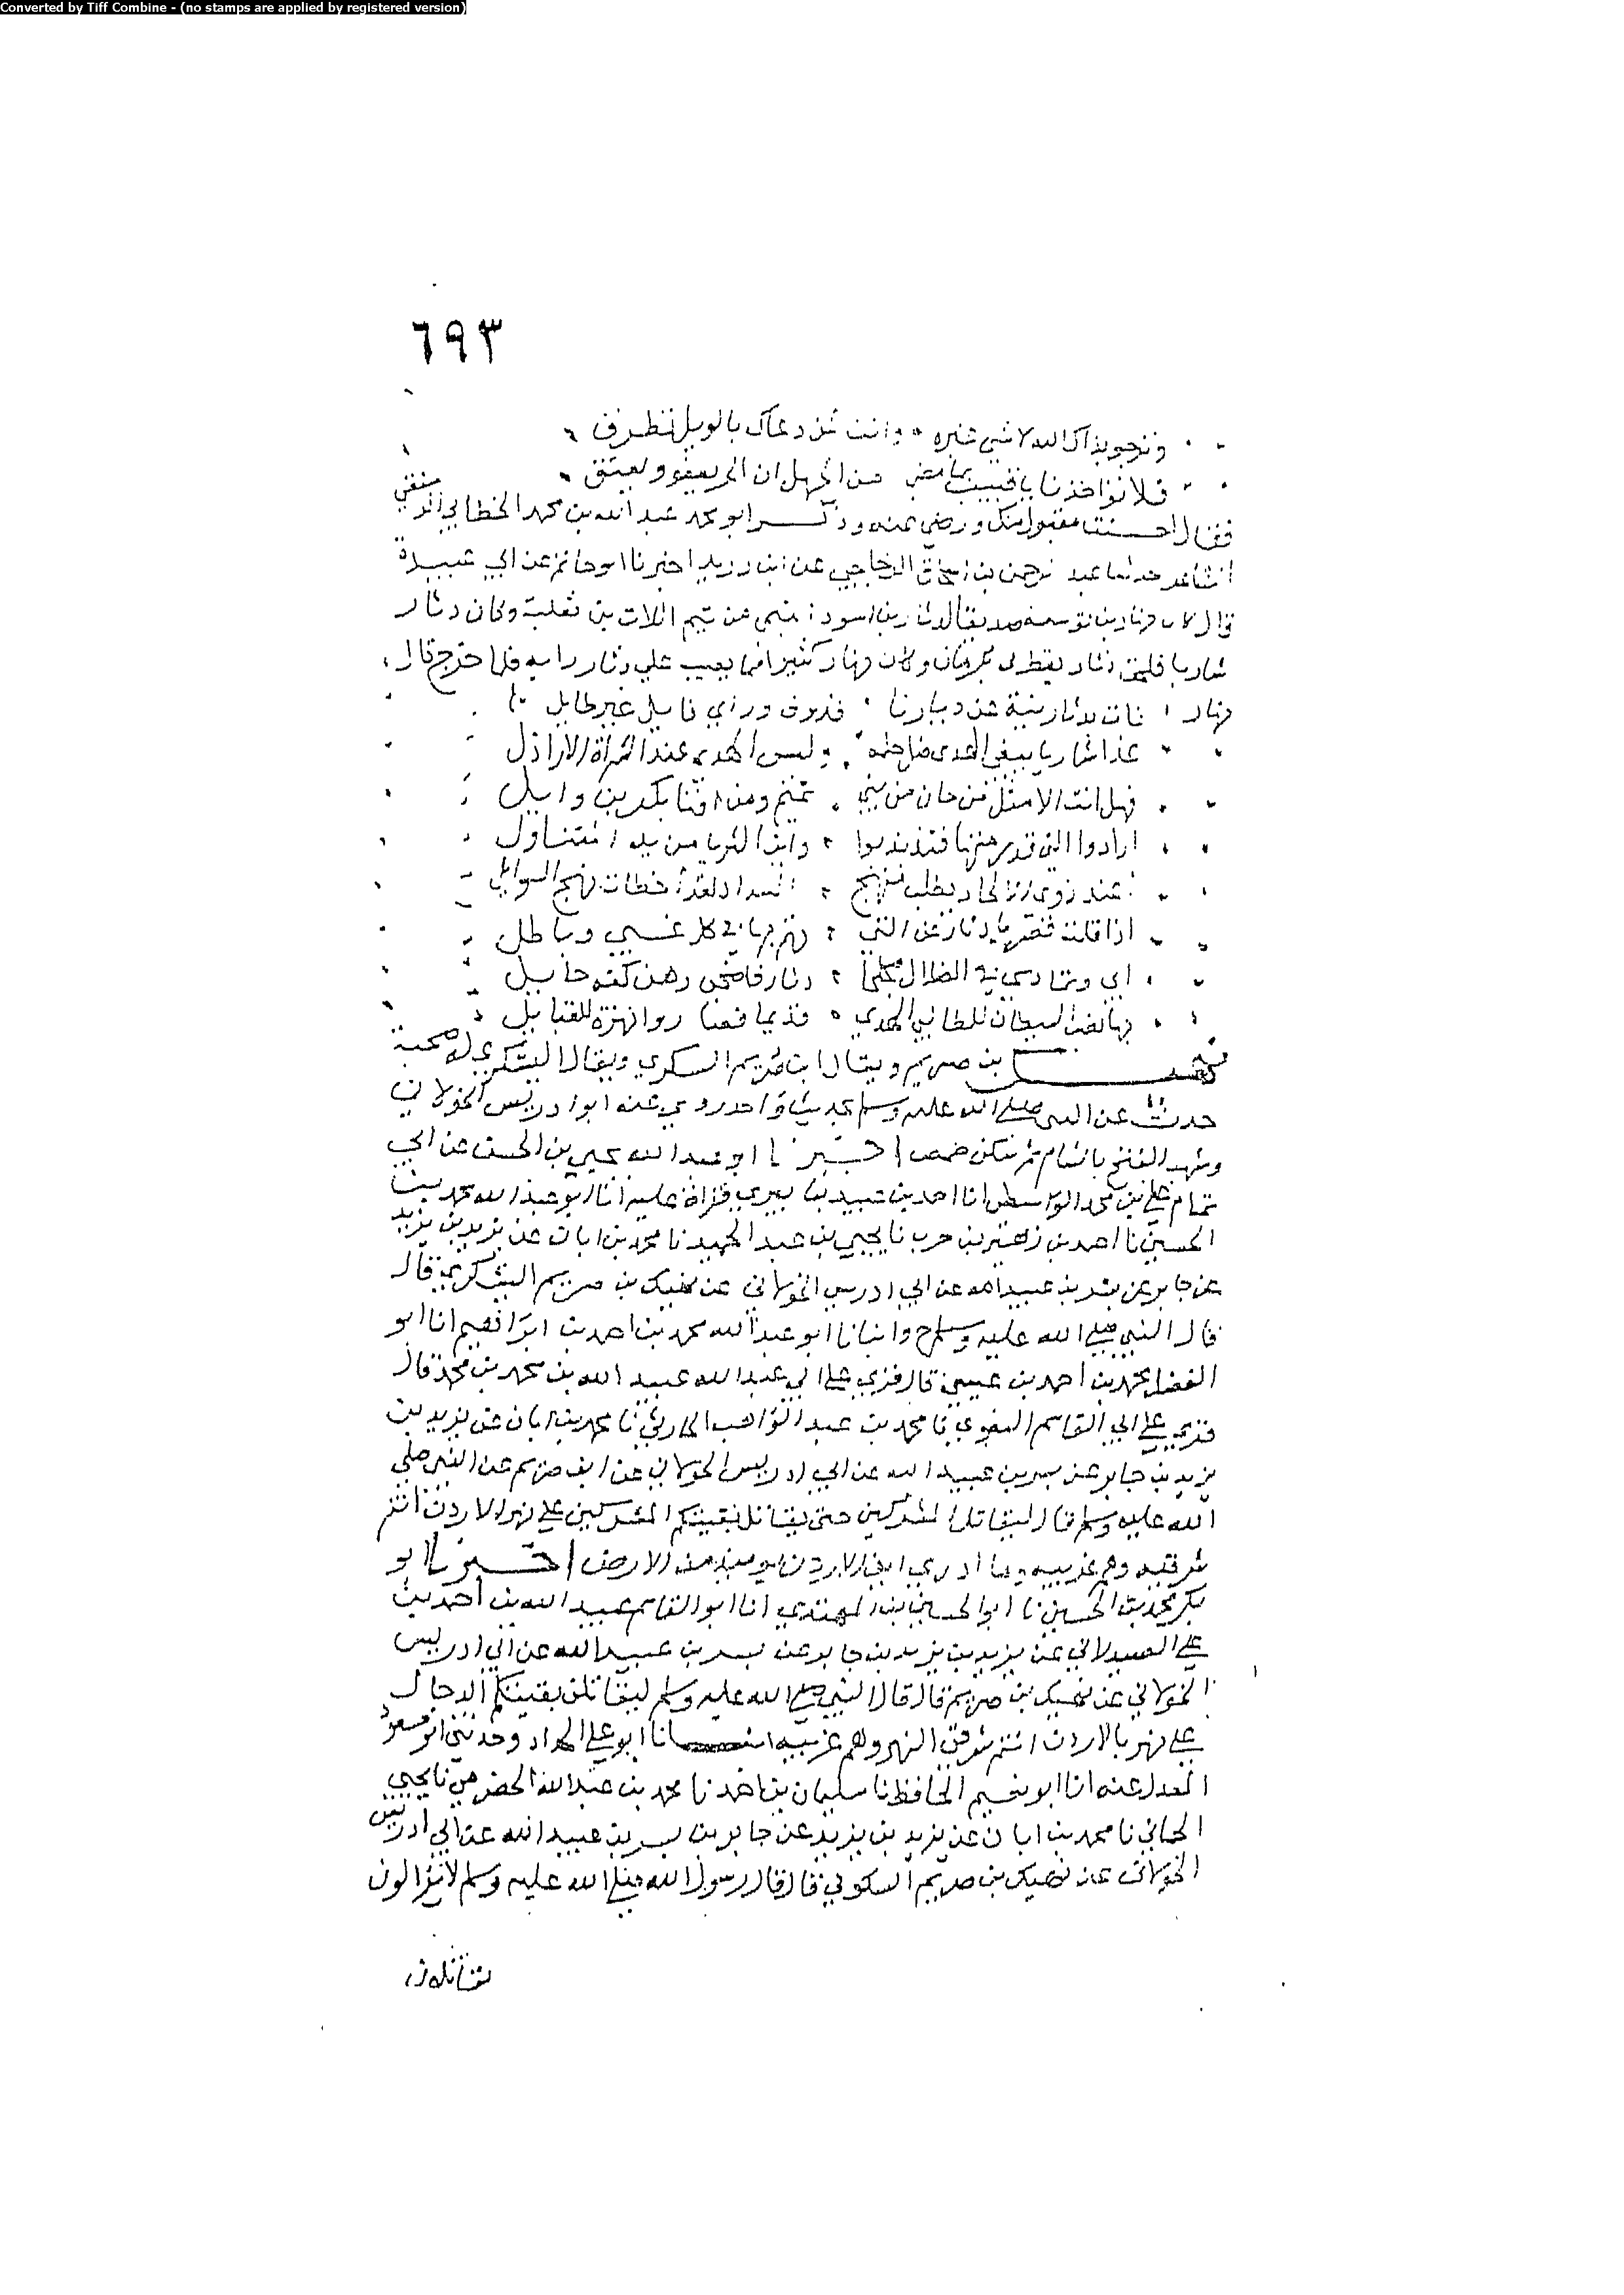 Converted by Tiff Combine - (no stamps are applied by registered version)
٦٩٣
ونرجو بذاك الله لا شي غيره وانت
فلا تؤاخذنا بما مضى من الجهل ان المر يهفو ويعتق
فقال احسنت منك ورضي عنه وذكر ابو محمد عبد الله بن محمد الخطابي
الشاعر حدثنا عبد الرحمن بن اسحاق الزجاجي عن ابن دريد اخبرنا ابو حاتم عن ابي عبيدة
قال كان نهار بن توسعة صديقا لدثار بن اسود من تيم اللات بن ثعلبة وكان دثار
شاريا فلحق دثار بقطري وكان نهار كثيرا ما يعيب على دثار رايه فلما خرج قال
نهار نات بدثار نية عن ديارنا وراي غير طايل
غدا شاريا يبغي الهدى وليس الهدى عند الشراة الاراذل
فهل انت الا مثل من حان من بني تميم ومن افنا بكر بن وايل
ارادوا التي قد فتذبذبوا واين الثريا من يد المتناول
اعند ذوي الالحاد يطلب منهج السداد لقد اخطات نهج السوابل
اذا قلت يا دثار عن التي في كل غي وباطل
ابى وتمادى في الضلال دثار فاضحى رهن كفه حابل
نهيك بن صريم ويقال ابن مريم السكوني ويقال اليشكري له صحبة
حدث عن النبي صلى الله عليه وسلم بحديث واحد روى عنه ابو ادريس الخولاني
وشهد الفتح بالشام ثم سكن حمص اخبرنا ابو عبد الله يحيى بن الحسن عن ابي
تمام علي بن محمد الواسطي انا احمد بن عبيد بن بيري قراة عليه انا ابو عبد الله محمد بن
الحسين نا احمد بن زهير بن حرب نا يحيى بن عبد الحميد نا محمد بن ابان عن يزيد بن يزيد
عن جابر عن بسر بن عبيد الله عن ابي ادريس الخولاني عن نهيك بن صريم اليشكري قال
قال النبي صلى الله عليه وسلم ح وانبانا ابو عبد الله محمد بن احمد بن ابراهيم انا ابو
الفضل محمد بن احمد بن عيسى قال قري على ابي عبد الله عبيد الله بن محمد بن محمد قال
قري على ابي القاسم البغوي نا محمد بن عبد الواهب الحارثي نا محمد بن ابان عن يزيد بن
يزيد بن جابر عن بسر بن عبيد الله عن ابي ادريس الخولاني عن ابن صريم عن النبي صلى
الله عليه وسلم قال ليقاتلن المشركين حتى يقاتل بقيتكم المشركين على نهر الاردن انتم
شرقيه وهم غربيه وما ادري اين الاردن يوميذ من الارض اخبرنا ابو
بكر محمد بن الحسين نا ابو الحسين بن المهتدي انا ابو القاسم عبيد الله بن احمد بن
علي الصيدلاني عن يزيد بن يزيد بن جابر عن بسر بن عبيد الله عن ابي ادريس
الخولاني عن نهيك بن صريم قال قال النبي صلى الله عليه وسلم ليقاتلن بقيتكم الدجال
على نهر بالاردن انتم شرقي النهر وهم غربيه انبانا ابو علي الحداد وحدثني ابو مسعود
المعدل عنه انا ابو نعيم الحافظ نا سليمان بن احمد نا محمد بن عبد الله الحضرمي نا يحيى
الحماني نا محمد بن ابان عن يزيد بن يزيد عن جابر بن بسر بن عبيد الله عن ابي ادريس
الخولاني عن نهيك بن صريم السكوني قال قال رسول الله صلى الله عليه وسلم لا تزالون
تقاتلون